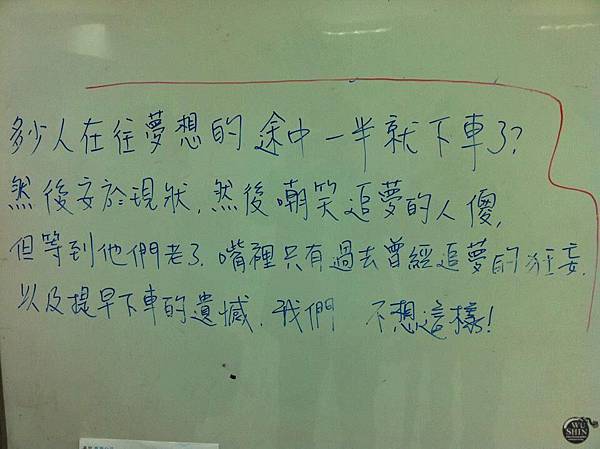 多少人在往夢想的途中一半就下車了?
然後安於現狀,然後嘲笑追夢的人傻,
但等到他們老了,嘴裡只有過去曾經追夢的狂妄,
以及提早下車的遺憾,我們 不想這樣!
WU
SHIN